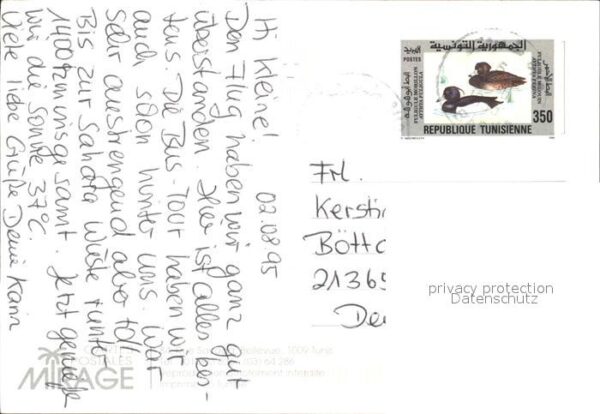 02.08.95
Hi Kleine!
Den Flug haben wir ganz gut
überstanden. Hier ist alles bes-
tens. Die Bus-Tour haben wir
auch schon hinter uns. War
sehr anstrengend aber toll
Bis zur Sahara Wüste runter
1400km insgesamt. Jetzt genießen
wir die Sonne 37°C.
Viele liebe Grüße Deine Karin
الجمهورية التونسية
POSTES
البريد
FULIGULE MORILLON
AYTHYA FULIGULA
350
REPUBLIQUE TUNISIENNE
Frl.
Kersti
Böttc
21365
De
privacy protection
Datenschutz
POSTALES
MIRAGE
Bellevue, 1009 Tunis
64 286
strictement interdite